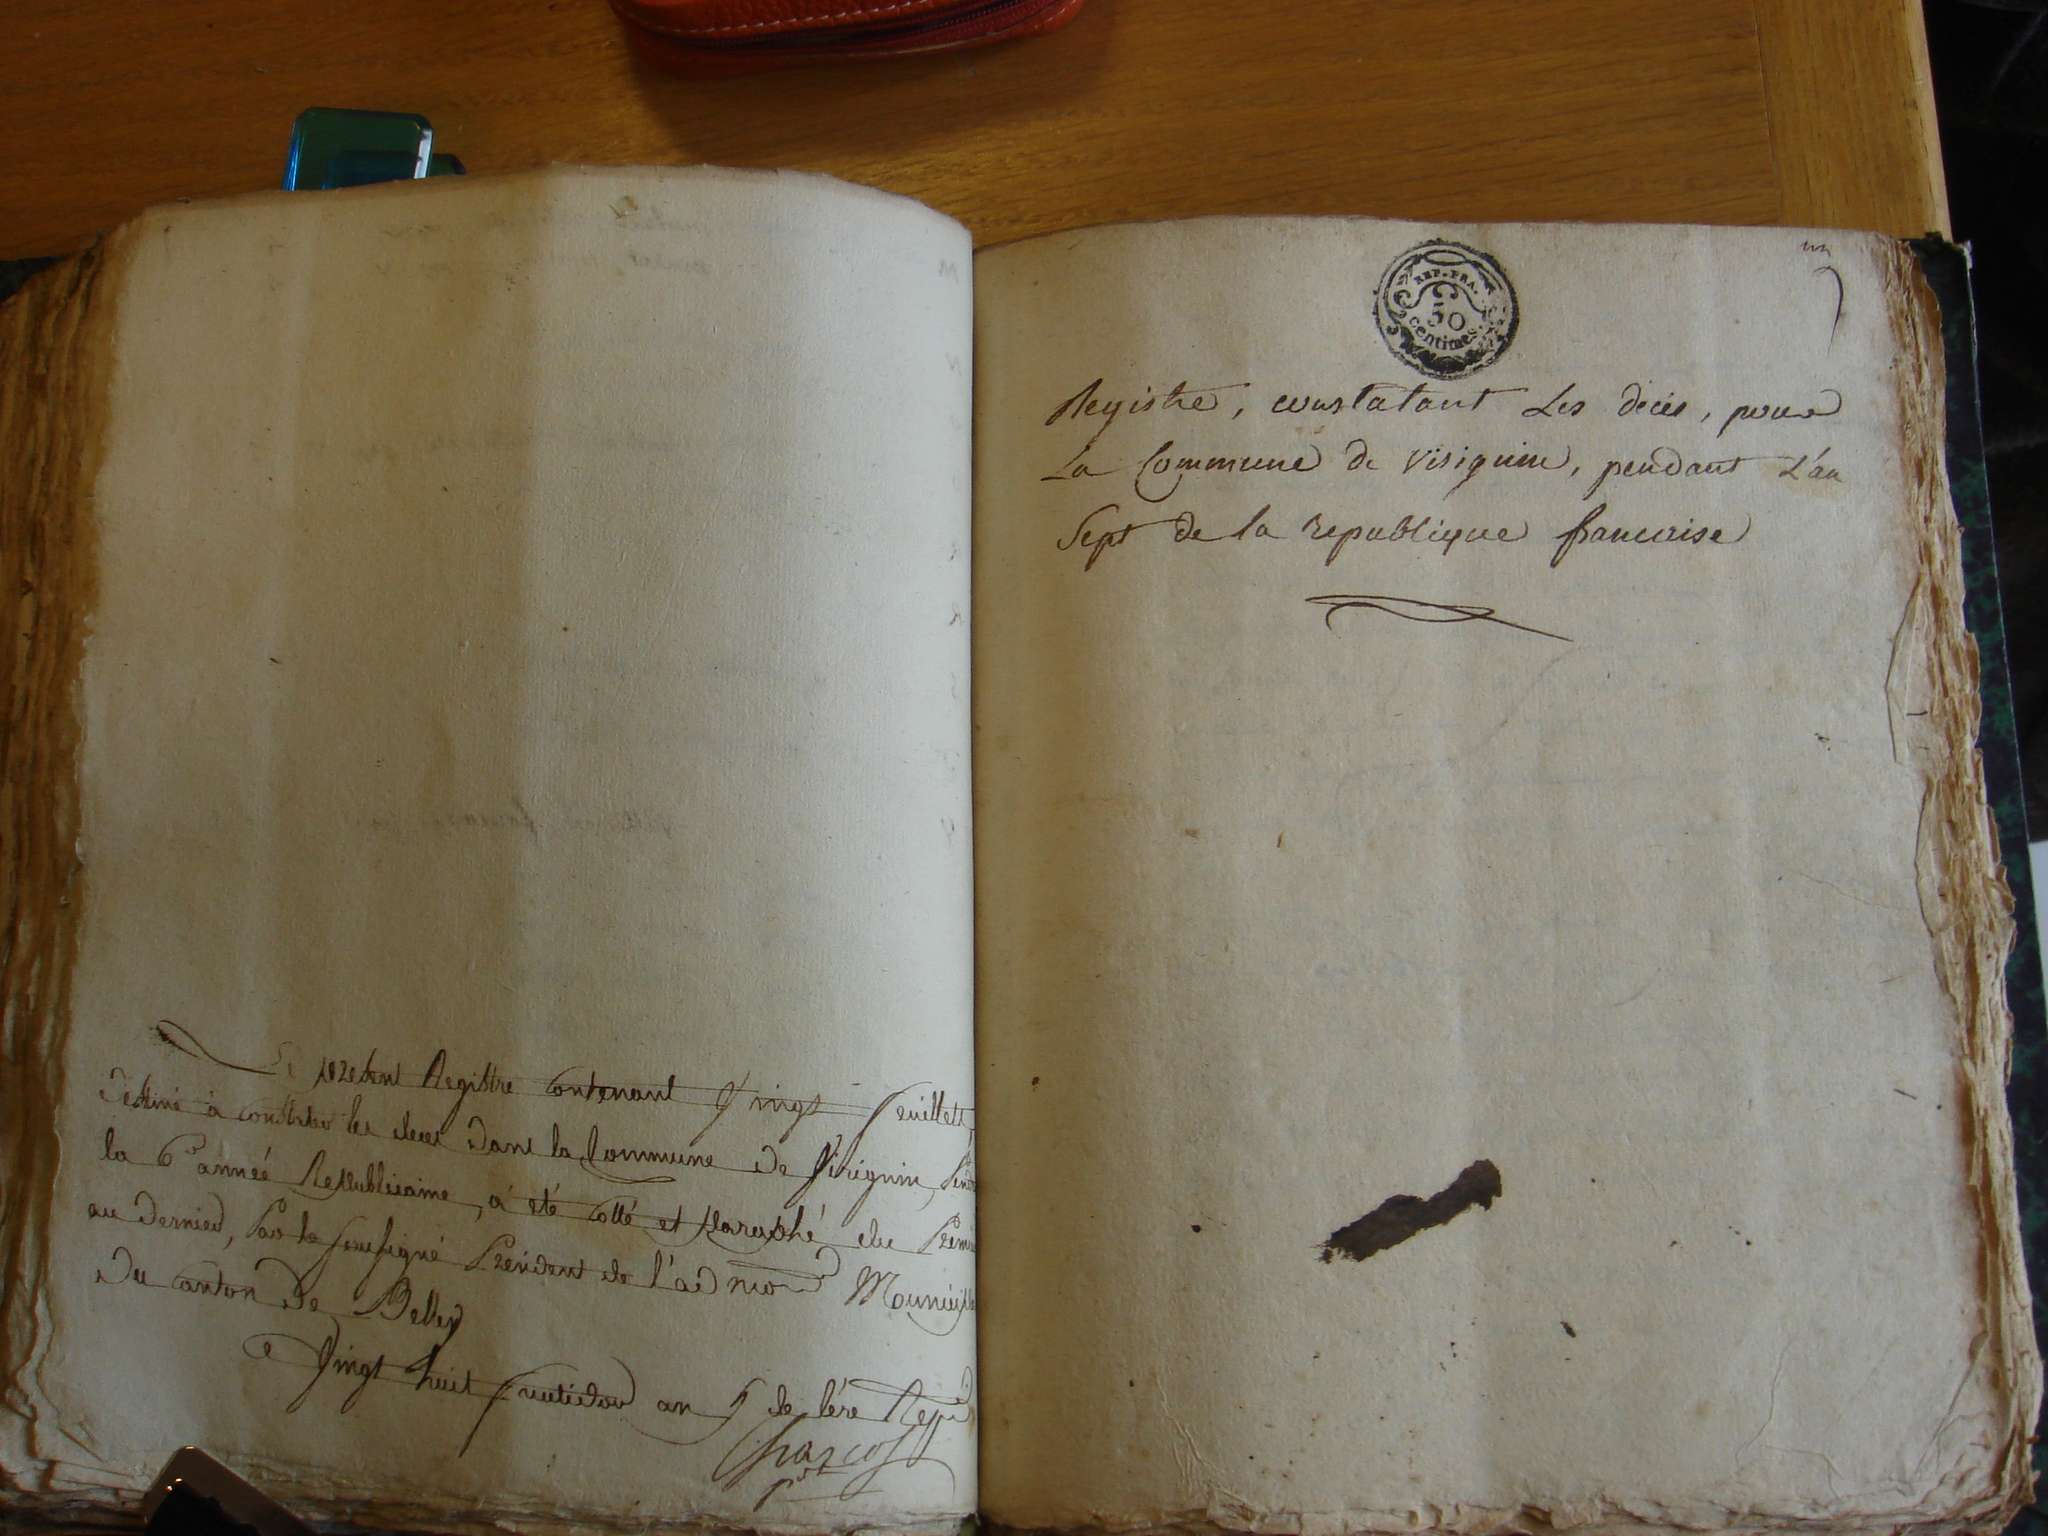 Le présent Registre Contenant Vingt feuillets,
destiné à constater les deces dans la Commune de Virignin, Pendt
la 6e année Republicaine, a été Cotté et Paraphé du Premier
au dernier, Par le soussigné Président de l'admon
du Canton de Belley
Vingt huit fructidor an 5 de l'ère Repne
un
REP. FRA.
50
centimes
Registre, constatant Les décès, pour
La Commune de Virignin, pendant L'an
Sept de la republique francaise